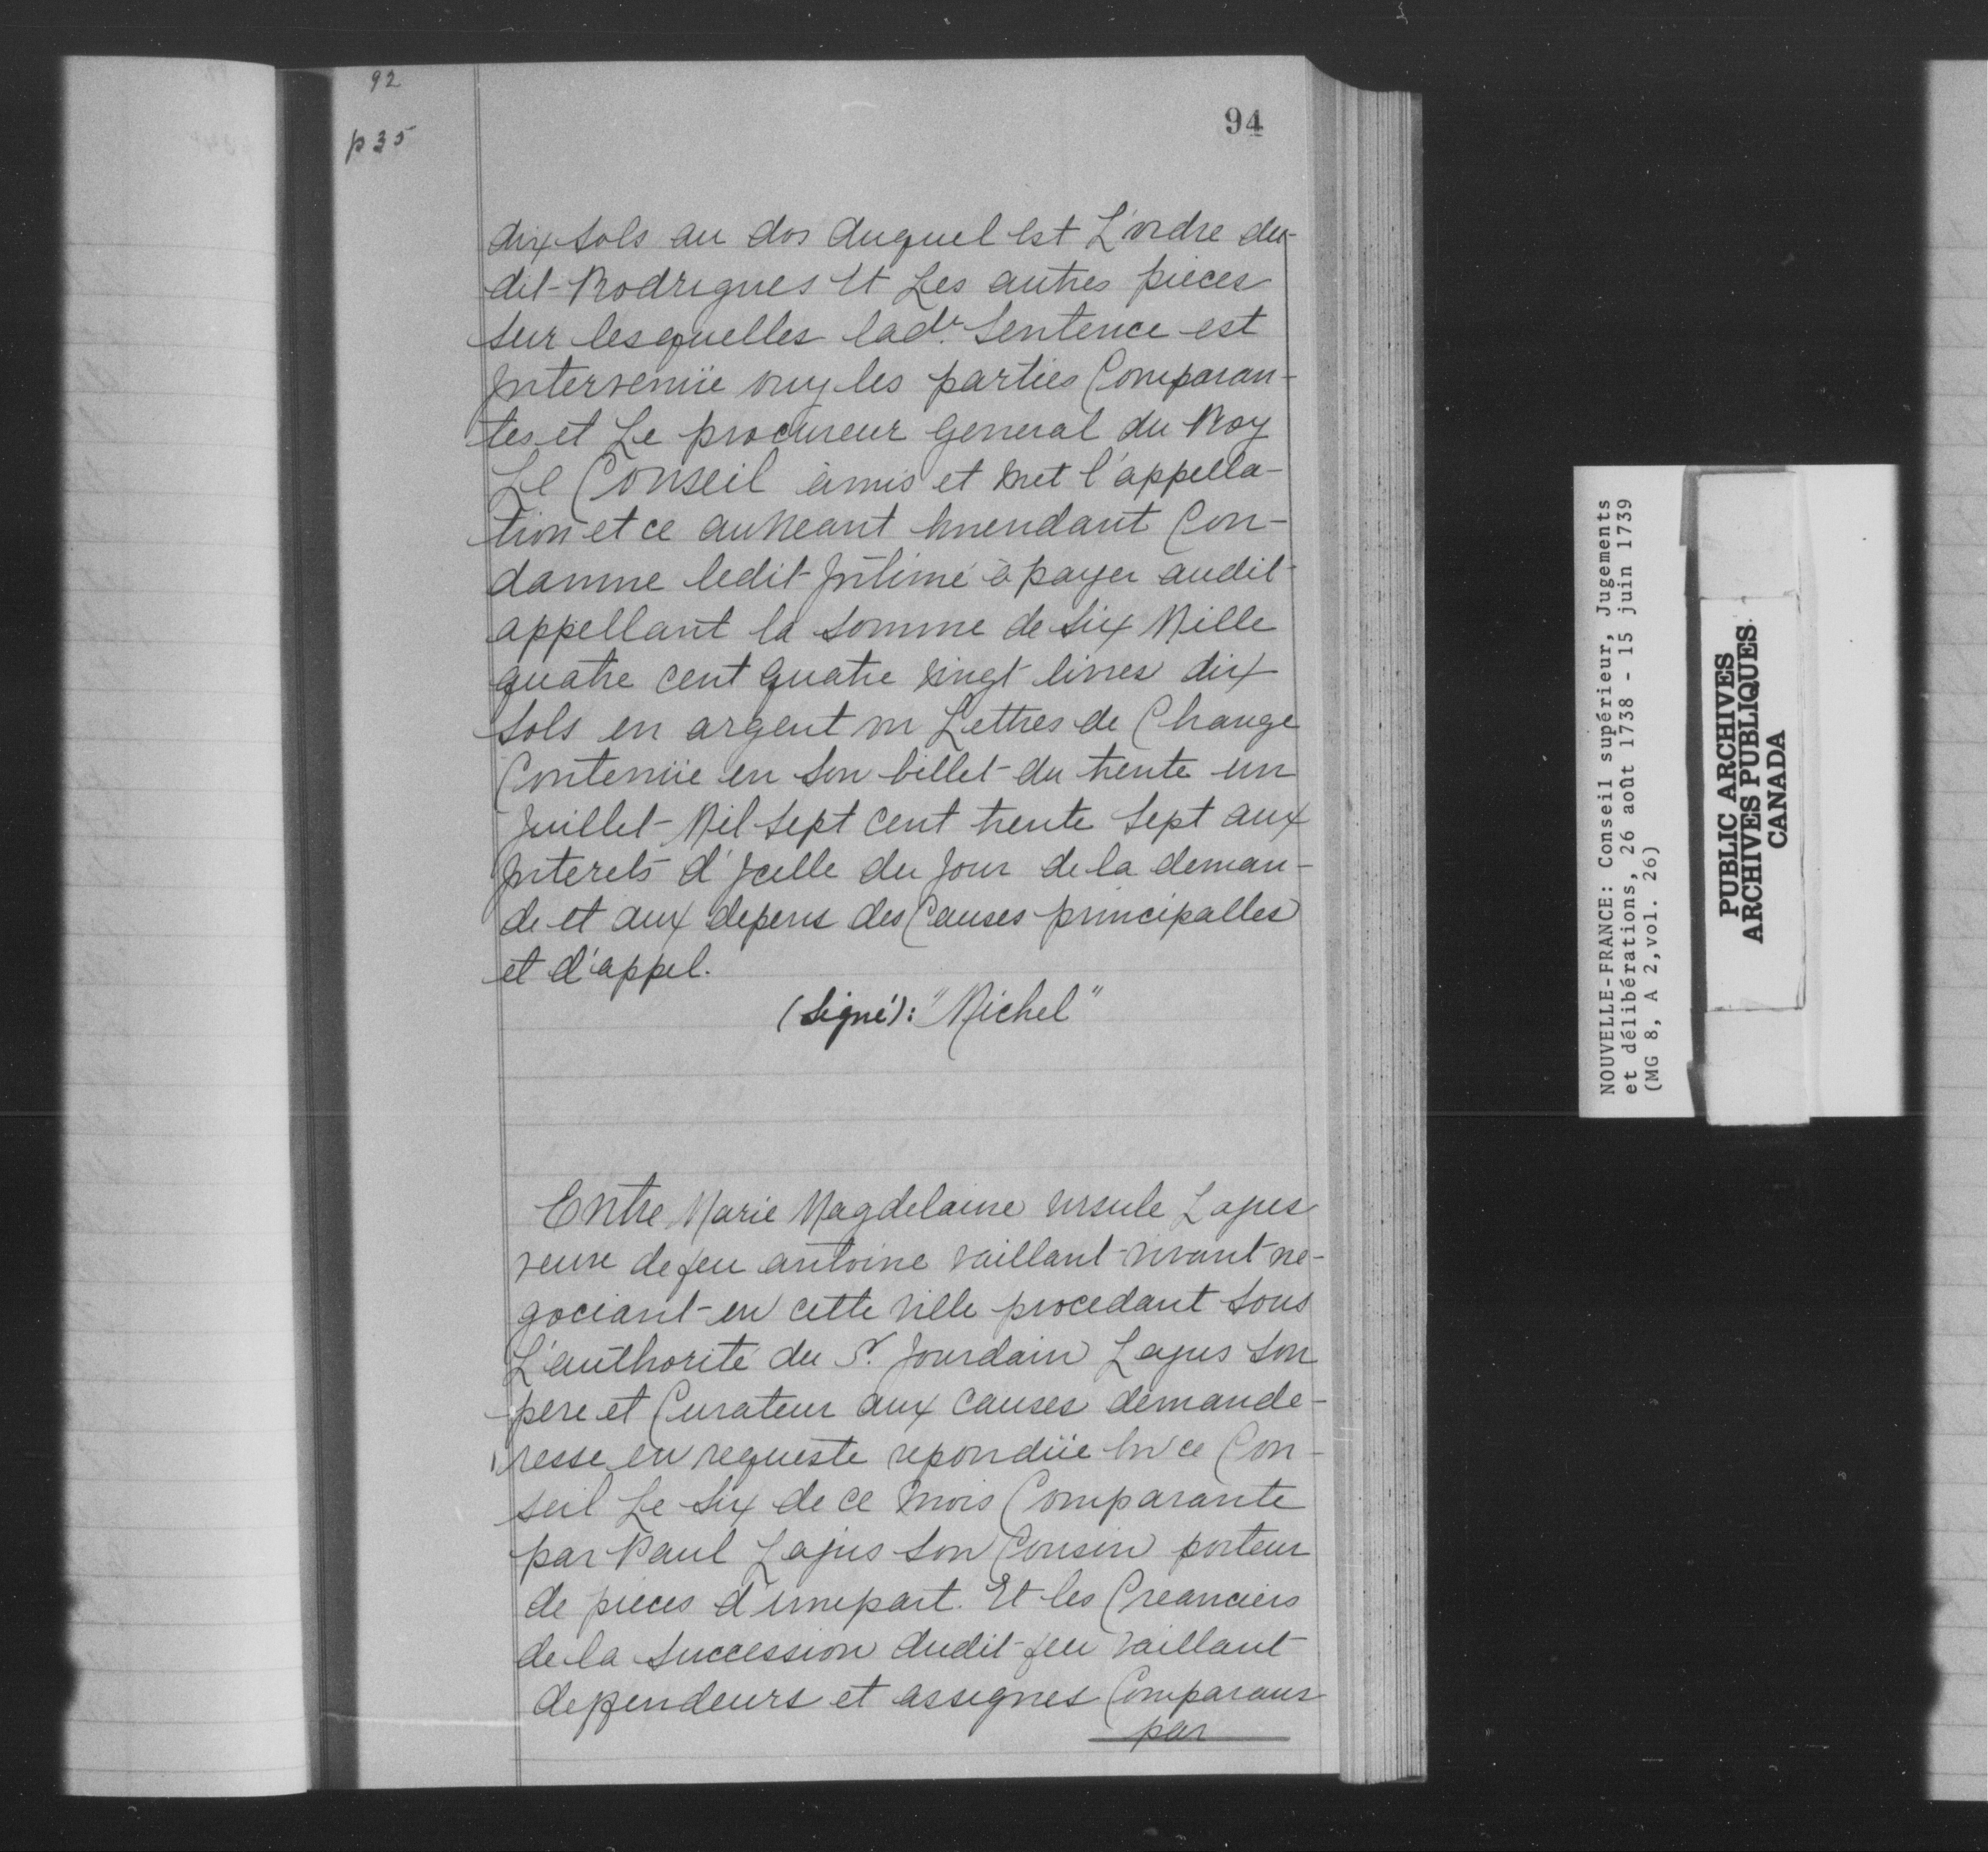 92
p 35
94
dix sols au dos duquel est L'ordre du-
dit Rodrigues Et Les autres pieces
sur lesquelles lade. Sentence est
Intervenüe ouy les parties Comparan-
tes et Le procureur General du Roy
Le Conseil àmis et met l'appella-
tion et ce au neant Emendant Con-
damne ledit Intimé à payer audit
appellant la somme de Six Mille
quatre cent quatre vingt livres dix
sols en argent ou Lettres de Change
Contenüe en son billet du trente un
Juillet Mil Sept cent trente Sept aux
Interets d'Jcelle du Jour de la deman-
de et aux depens des Causes principalles
et d'appel.
(Signé): "Michel"
Entre Marie Magdelaine ursule Lajus
veuve de feu antoine vaillant vivant ne-
gociant en cette ville procedant sous
L'authorité du Sr. Jourdain Lajus son
pere et Curateur aux causes demande-
resse en requeste repondüe En ce Con-
seil Le Six de ce mois Comparante
par Paul Lajus son Cousin porteur
de pieces d'unepart. Et les Creanciers
de la succession dudit feu vaillant
deffendeurs et assignes Comparans
par
NOUVELLE-FRANCE: Conseil supérieur, Jugements
et délibérations, 26 août 1738 - 15 juin 1739
(MG 8, A 2,vol. 26)
PUBLIC ARCHIVES
ARCHIVES PUBLIQUES
CANADA